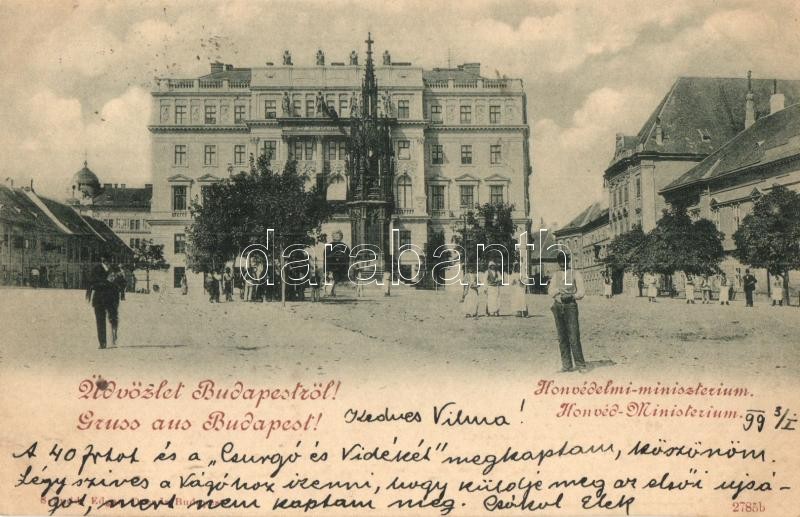 darabanth.com
Üdvözlet Budapestről!
Gruss aus Budapest!
Honvédelmi-miniszterium.
Honvéd-Ministerium.
Kedves Vilma!
99 3/I
A 40 frtot és a „Csurgó és Vidékét" megkaptam, köszönöm.
Légy szives a Vágóhoz izenni, hogy küldje meg az elsői ujsá-
got, mert nem kaptam meg. Csókol Elek
Edgar Budapest
2785b